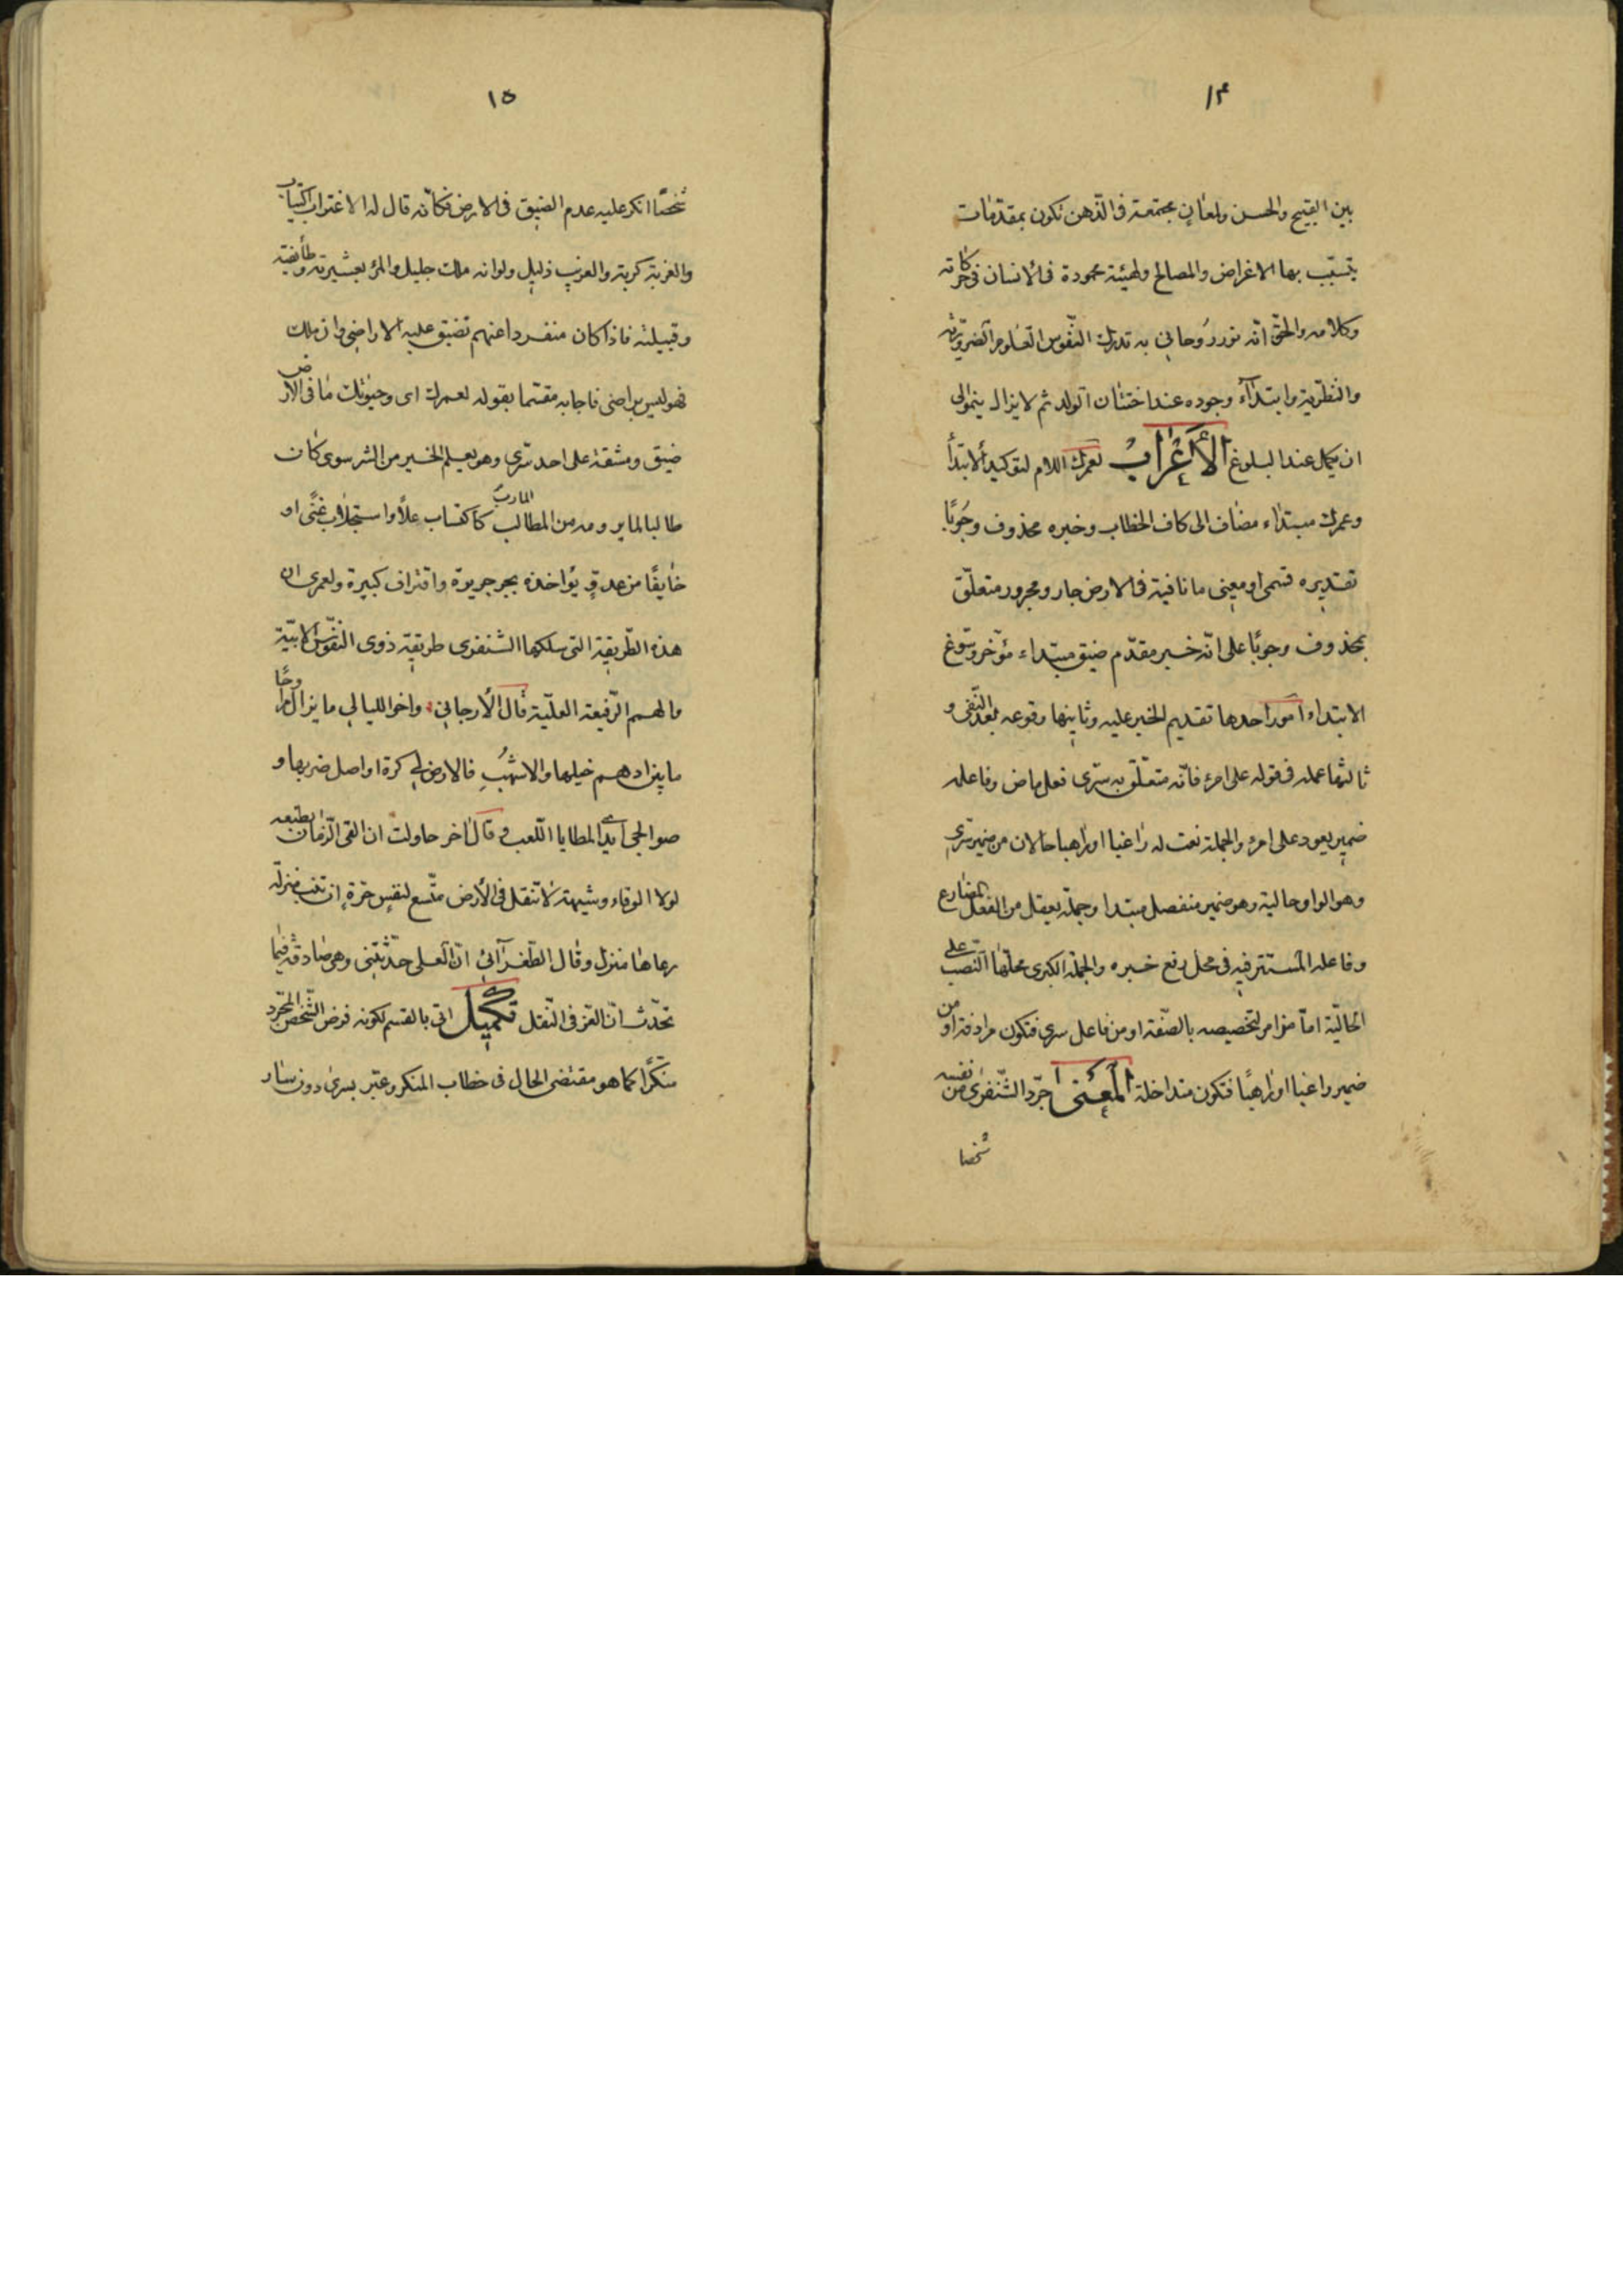 ١٤
بين القبيح والحسن ولمعان مجتمعة في الذهن تكون بمقدمات
يتسبب بها الاغراض والمصالح ولهيئة محمودة في الانسان في حركاته
وكلامه والحق انه نور روحاني به تدرك النفوس العلوم الضرورية
والنظرية وابتداء وجوده عند اختتان الولد ثم لا يزال ينمو الى
ان يكمل عند البلوغ الأعراب لعمرك اللام لتوكيد الابتدأ
وعمرك مبتداء مضاف الى كاف الخطاب وخبره محذوف وجوبًا
تقديره قسمى او معينى ما نافية في الارض جار ومجرور متعلّق
بمحذوف وجوبًا على انّه خبر مقدّم ضيق مبتداء مؤخر وسوّغ
الابتداء امور احدها تقديم الخبر عليه وثانيها وقوعه بعد النفى و
ثالثها عمله في قوله على امرء فانّه متعلّق به سرى فعل ماض وفاعله
ضمير يعود على امرء والجملة نعت له راغبا او راهبا حالان من ضمير سرى
وهو الواو حالية وهو ضمير منفصل مبتدا وجملة يعقل من الفعل المضارع
وفاعله المستتر فيه في محل رفع خبره والجملة الكبرى محلّها النّصب على
الحاليّة امّا من امرء لتخصيصه بالصّفة او من فاعل سرى فتكون مرادفة او من
ضمير راغبا او راهبًا فتكون متداخلة المعنى جرّد الشّنفرى من نفسه
شخصا
١٥
شخصًا انكر عليه عدم الضيق في الارض فكأنّه قال له الاغتراب اكتياب
والغربة كربة والغريب ذليل ولو انه ملك جليل والمرء بعشيرته وطأيفته
وقبيلته فاذا كان منفردا عنهم تضيق عليه الاراضى وان ملك
فهو ليس براضى فاجابه مقسما بقوله لعمرك اى وحيوتك ما في الارض
ضيق ومشقة على احد سرى وهو يعلم الخير من الشر سوى كان
طالبا لما يرومه من المطالب المارب كاكتساب علاً واستجلاب غنًى او
خايفًا من عدوّ يؤاخذه بجر جريرة واقتراف كبيرة ولعمرى ان
هذه الطّريقة التى سلكها الشنفرى طريقة ذوى النفوس الابيّة
والهمم الرّفيعة العليّة قال الأرجاني واخو الليالي ما يزال مراوحًا
ما بين ادهم خيلها والاشهب فالارض لي كرة اواصل ضربها و
صوالجى ايدي المطايا اللّعب وقال اخر حاولت ان القى الزمان بطبعه
لولا الوفاء وشيمة لا تنقل في الأرض متّسع لنفس حرّة ان تنب منزلة
رعاها منزل وقال الطّغرآئي انّ العلى حدّثتنى وهى صادقة فيما
تحدّث انّ العز في النّقل تكميل اتى بالقسم لكونه فرض الشّخص المجّرد
منكرًا كما هو مقتضى الحال في خطاب المنكر وعبّر بسرى دون سار